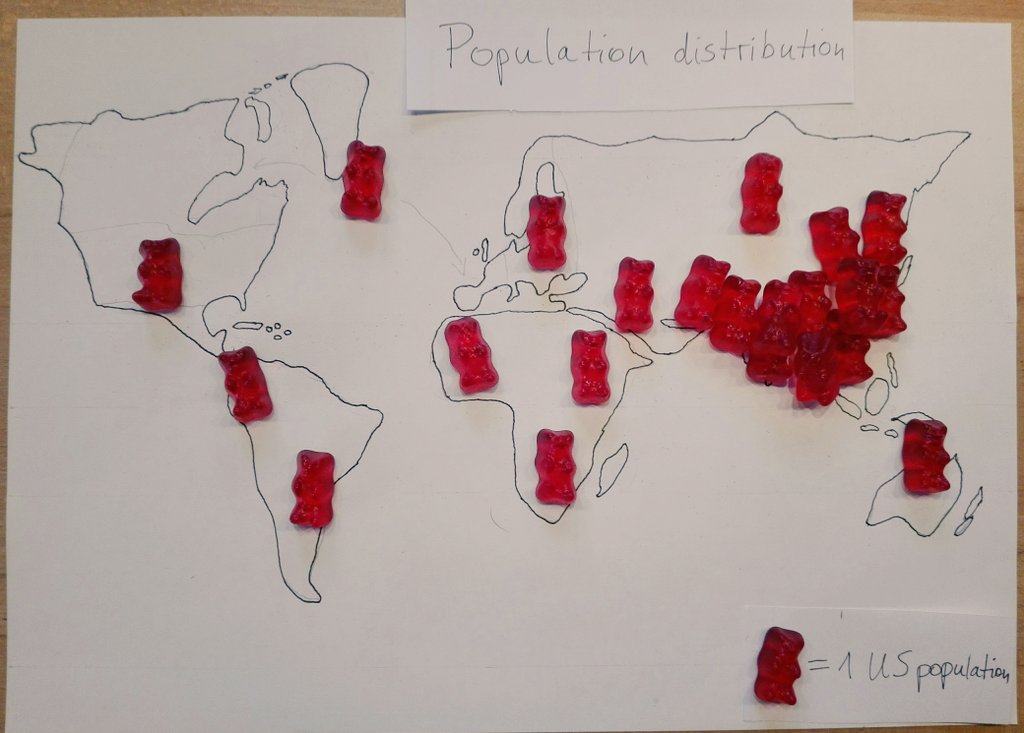 Population distribution
= 1 US population